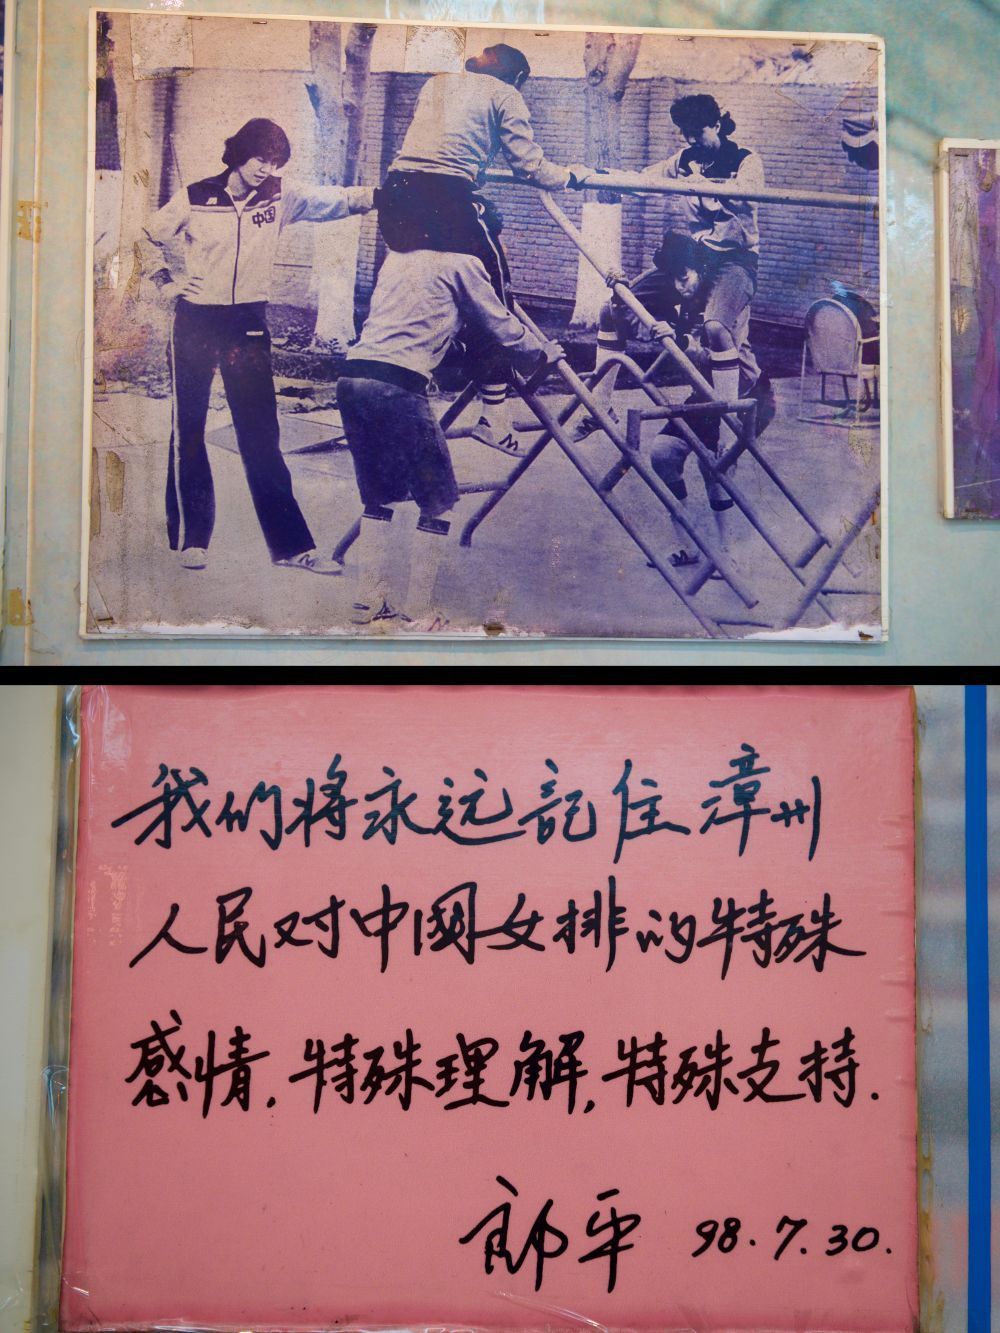 中国
我们将永远記住漳州
人民对中國女排的特殊
感情.特殊理解,特殊支持.
郎平 98.7.30.